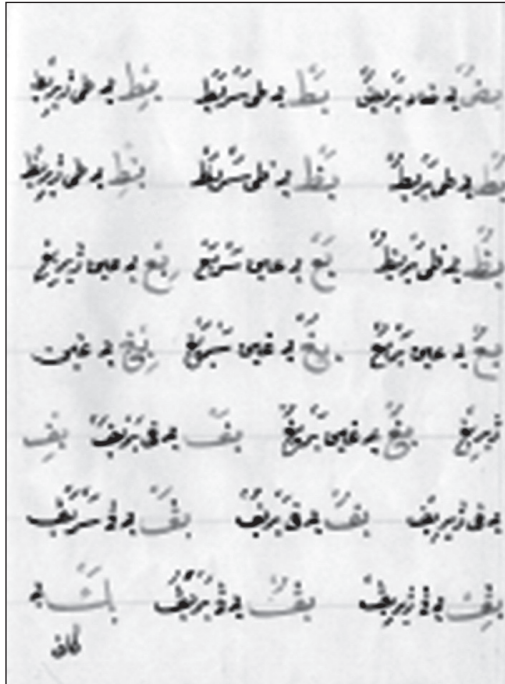 بض بے ضاد بربض بط بے طی سربط بط بے طی زیربط
بط بے طی بربط بظ بے ظی سربظ بظ بے ظی زیربظ
بظ بے ظی بربظ بع بے عین سربع بع بے عین زیربع
بع بے عین بربع بغ بے غین سربغ بغ بے غین
زیربغ بغ بے غین بربغ بف بے فی بف
بے فی زیربف بف بے فی بربف بق بے سربق
بق بے زیربق بق بے بربق بك بے
كاف